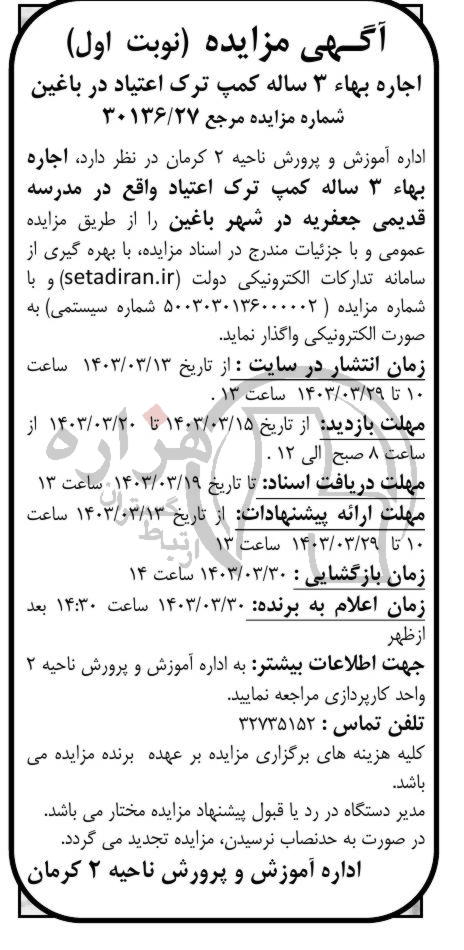 آگهی مزایده (نوبت اول)
اجاره بهاء ۳ ساله کمپ ترک اعتیاد در باغین
شماره مزایده مرجع ۳۰۱۳۶/۲۷
اداره آموزش و پرورش ناحیه ۲ کرمان در نظر دارد، اجاره
بهاء ۳ ساله کمپ ترک اعتیاد واقع در مدرسه
قدیمی جعفریه در شهر باغین را از طریق مزایده
عمومی و با جزئیات مندرج در اسناد مزایده، با بهره گیری از
سامانه تدارکات الکترونیکی دولت (setadiran.ir) و با
شماره مزایده ( ۵۰۰۳۰۳۰۱۳۶۰۰۰۰۰۲ شماره سیستمی) به
صورت الکترونیکی واگذار نماید.
زمان انتشار در سایت : از تاریخ ۱۴۰۳/۰۳/۱۳ ساعت
۱۰ تا ۱۴۰۳/۰۳/۲۹ ساعت ۱۳ .
مهلت بازدید: از تاریخ ۱۴۰۳/۰۳/۱۵ تا ۱۴۰۳/۰۳/۲۰ از
ساعت ۸ صبح الی ۱۲ .
مهلت دریافت اسناد: تا تاریخ ۱۴۰۳/۰۳/۱۹ ساعت ۱۳
مهلت ارائه پیشنهادات: از تاریخ ۱۴۰۳/۰۳/۱۳ ساعت
۱۰ تا ۱۴۰۳/۰۳/۲۹ ساعت ۱۳
زمان بازگشایی : ۱۴۰۳/۰۳/۳۰ ساعت ۱۴
زمان اعلام به برنده: ۱۴۰۳/۰۳/۳۰ ساعت ۱۴:۳۰ بعد
ازظهر
جهت اطلاعات بیشتر: به اداره آموزش و پرورش ناحیه ۲
واحد کارپردازی مراجعه نمایید.
تلفن تماس : ۳۲۷۳۵۱۵۲
کلیه هزینه های برگزاری مزایده بر عهده برنده مزایده می
باشد.
مدیر دستگاه در رد یا قبول پیشنهاد مزایده مختار می باشد.
در صورت به حدنصاب نرسیدن، مزایده تجدید می گردد.
اداره آموزش و پرورش ناحیه ۲ کرمان
هزاره